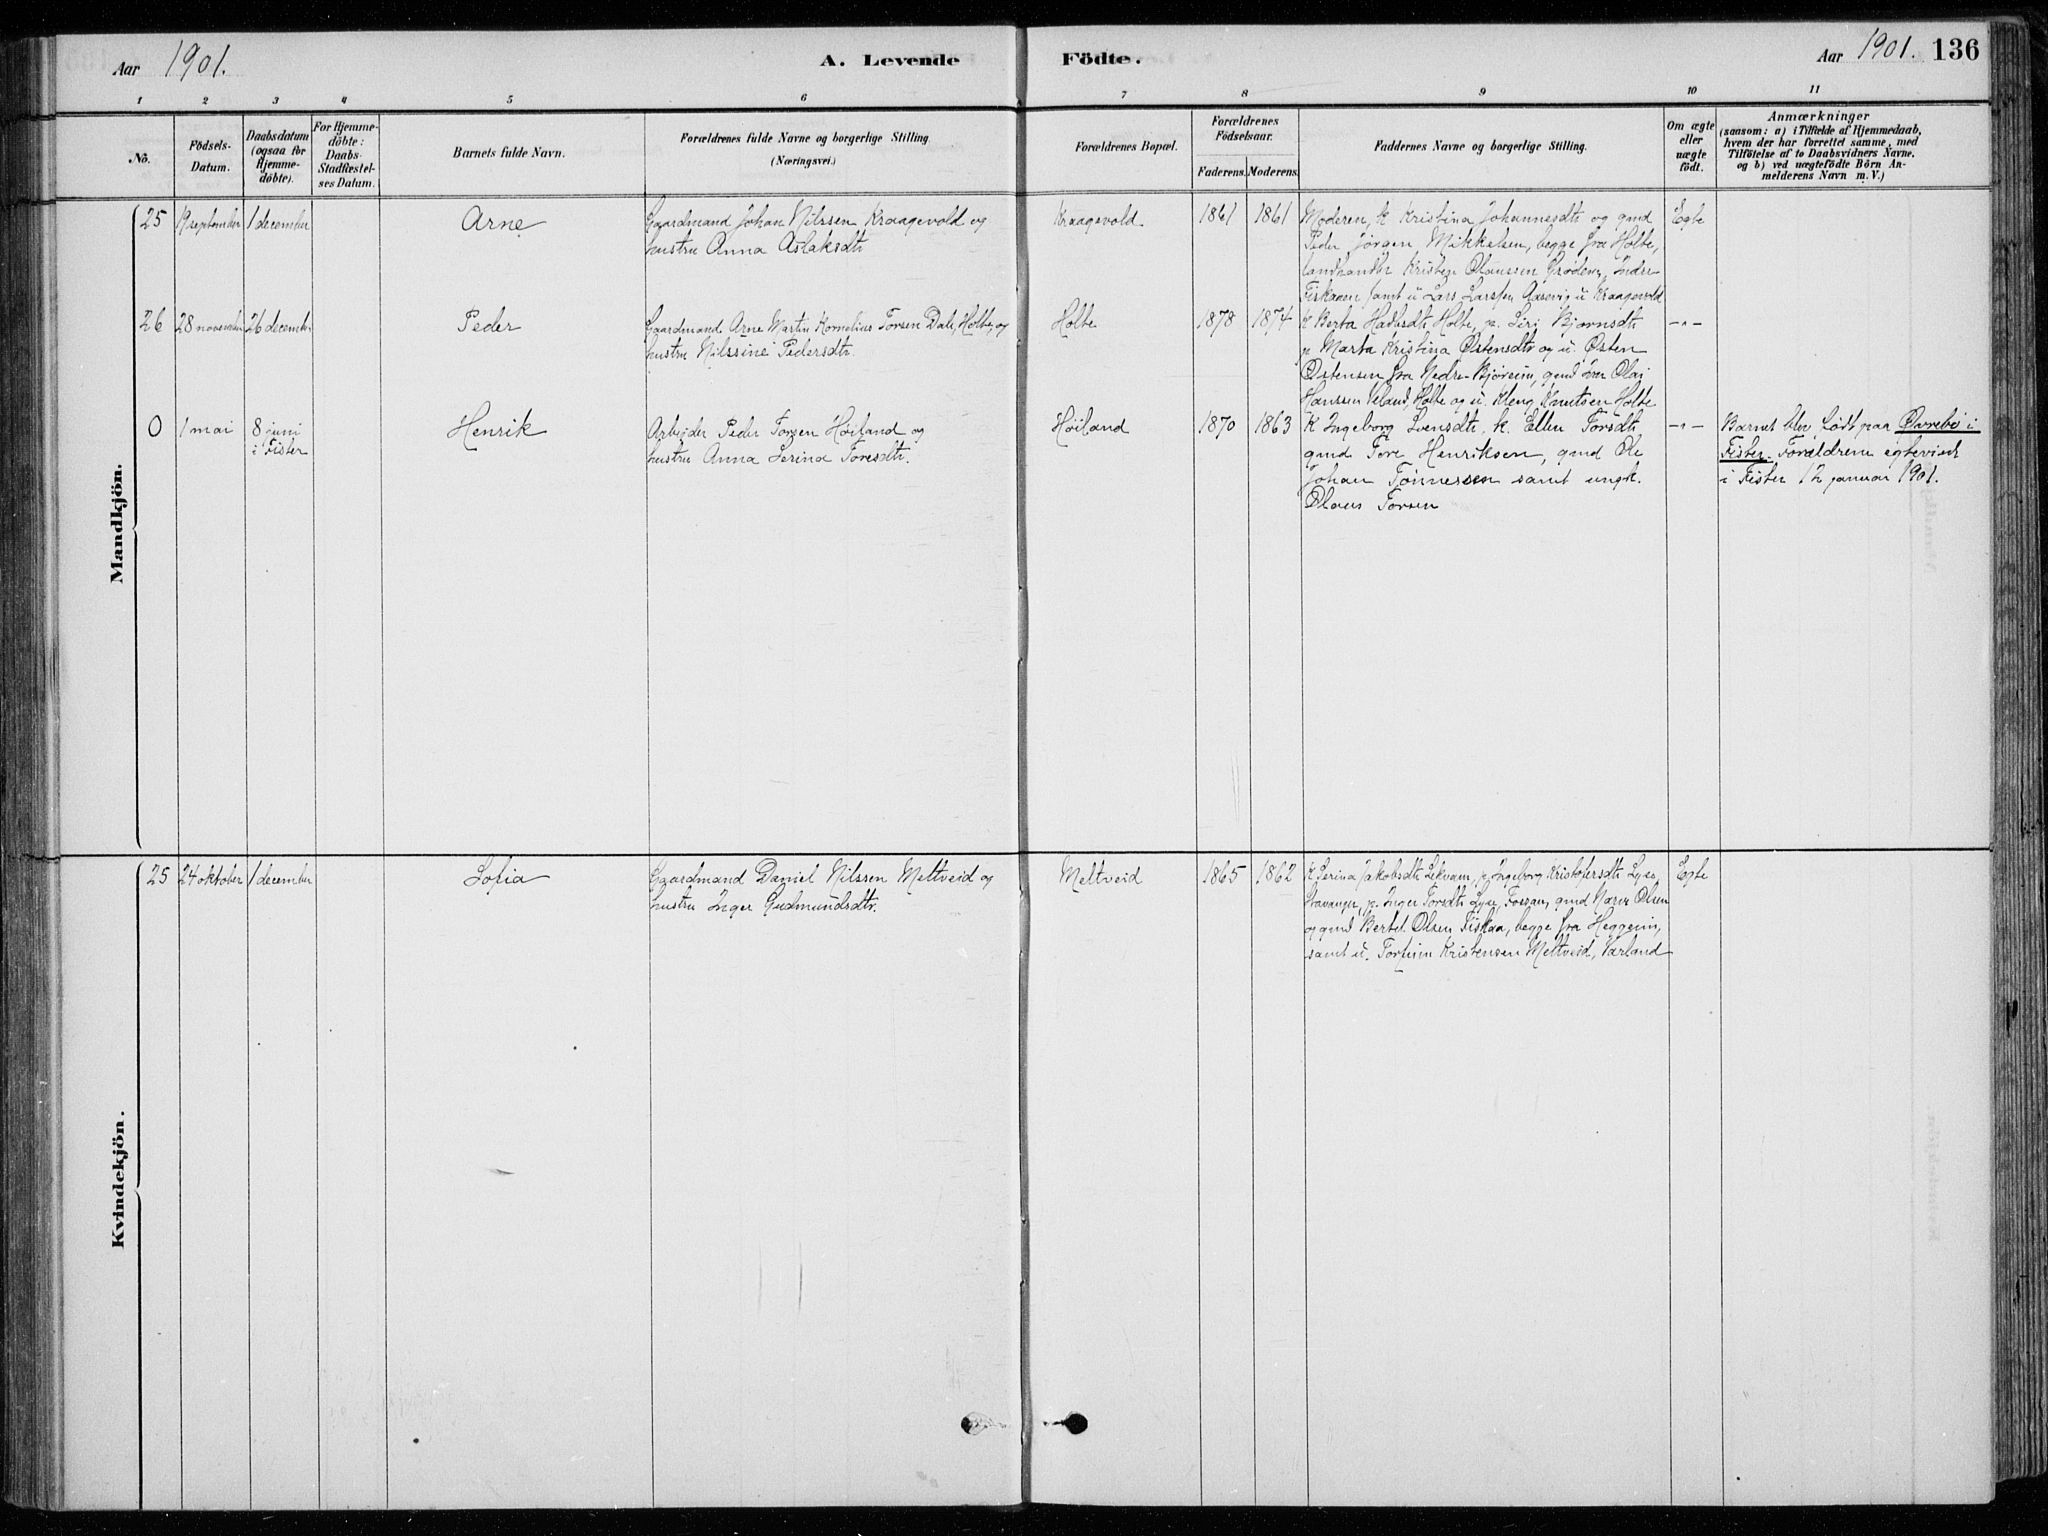 Aar 1901.
A. Levende Födte.
Aar 1901. 136
1 2 3 4 5 6 7 8 9 10 11
No.
Födsels-Datum.
Daabsdatum (ogsaa for Hjemme-döbte).
For Hjemme-döbte: Daabs-Stadfæstel-ses Datum.
Barnets fulde Navn.
Forældrenes fulde Navne og borgerlige Stilling.
(Næringsvei.)
Forældrenes Bopæl.
Forældrenes Födselsaar.
Faderens. Moderens.
Faddernes Navne og borgerlige Stilling.
Om ægte eller uægte födt.
Anmærkninger
(saasom: a) i Tilfælde af Hjemmedaab,
hvem der har forrettet samme, med
Tilföielse af to Daabsvidners Navne,
og b) ved uægtefödte Börn An-
melderens Navn m. V.)
Mandkjön.
25 19 september 1 december Arne
Gaardmand Johan Nilssen Kraagevold og
hustru Anna Aslaksdtr
Kraagevold 1861 1861
Moderen, k Kristina Johannesdtr og gmd
Peder Jörgen Mikkelsen, begge fra Holte,
landhandler Kristen Olaussen Gröden, Indre
Fiskaaen samt u Lars Larssen Aasevig u Kraagevold
Egte
26 28 november 26 december Peder
Gaardmand Arne Martin Kornelius Torsen Dale, Holte, og
hustru Nilssine Pedersdtr.
Holte 1878 1874
K Berta Hadlesdtr Holte, p. Siri Bjørnsdtr
p Marta Kristina Østensdtr og u. Østen
Østensen fra Nedre-Bjøreim, gmd Iver Olai
Hanssen Veland, Holte og u. Kleng Knutsen Holte
-"-
0 1 mai 8 juni
i Fister
Henrik
Arbeider Peder Torsen Höiland og
hustru Anna Serina Toresdtr.
Höiland 1870 1863
K Ingeborg Svensdtr. k. Ellen Torsdtr
gmd Tore Henriksen, gmd Ole
Johan Tönnessen samt ungk.
Olaus Torsen
-"-
Barnet blev födt paa Övrebö i
Fister. Forældrene egteviedt
i Fister 12 januar 1901.
Kvindekjön.
25 24 oktober 1 december Sofia
Gaardmand Daniel Nilssen Meltveid og
hustru Inger Gudmundsdtr.
Meltveid 1865 1862
K Serina Jakobsdtr Lekvam, p. Ingeborg Kristofersdtr Lyse,
Stavanger, p. Inger Torsdtr Lyse, Fossan, gmd Narve Olsen
og gmd Bertel Olsen Fiskaa, begge fra Heggeim,
samt u. Torfinn Kristensen Meltveid, Varland
Egte